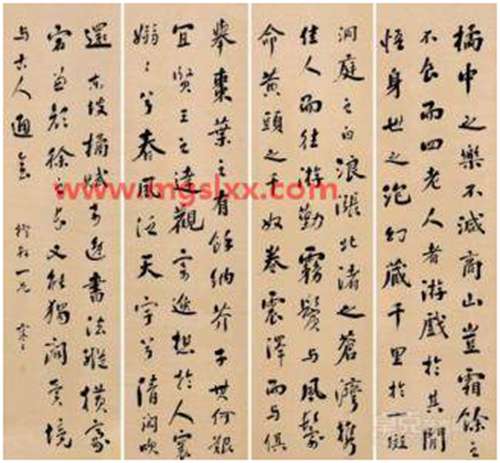 橘中之樂不減商山豈霜餘之
不食而四老人者游戲於其間
悟身世之泡幻藏千里於一斑
洞庭之白浪漲北渚之蒼灣攜
佳人而往游勤霧鬢與風鬟
命黃頭之千奴卷震澤而與俱
舉棗葉之有餘納芥子其何艱
宜賢王之達觀寄逸想於人寰
嫋〻兮春風泛天宇兮清閒吹
還 東坡橘賦 書法縱橫豪
宕 徐 之長又能獨闢異境
与古人通
www.mgslxx.com